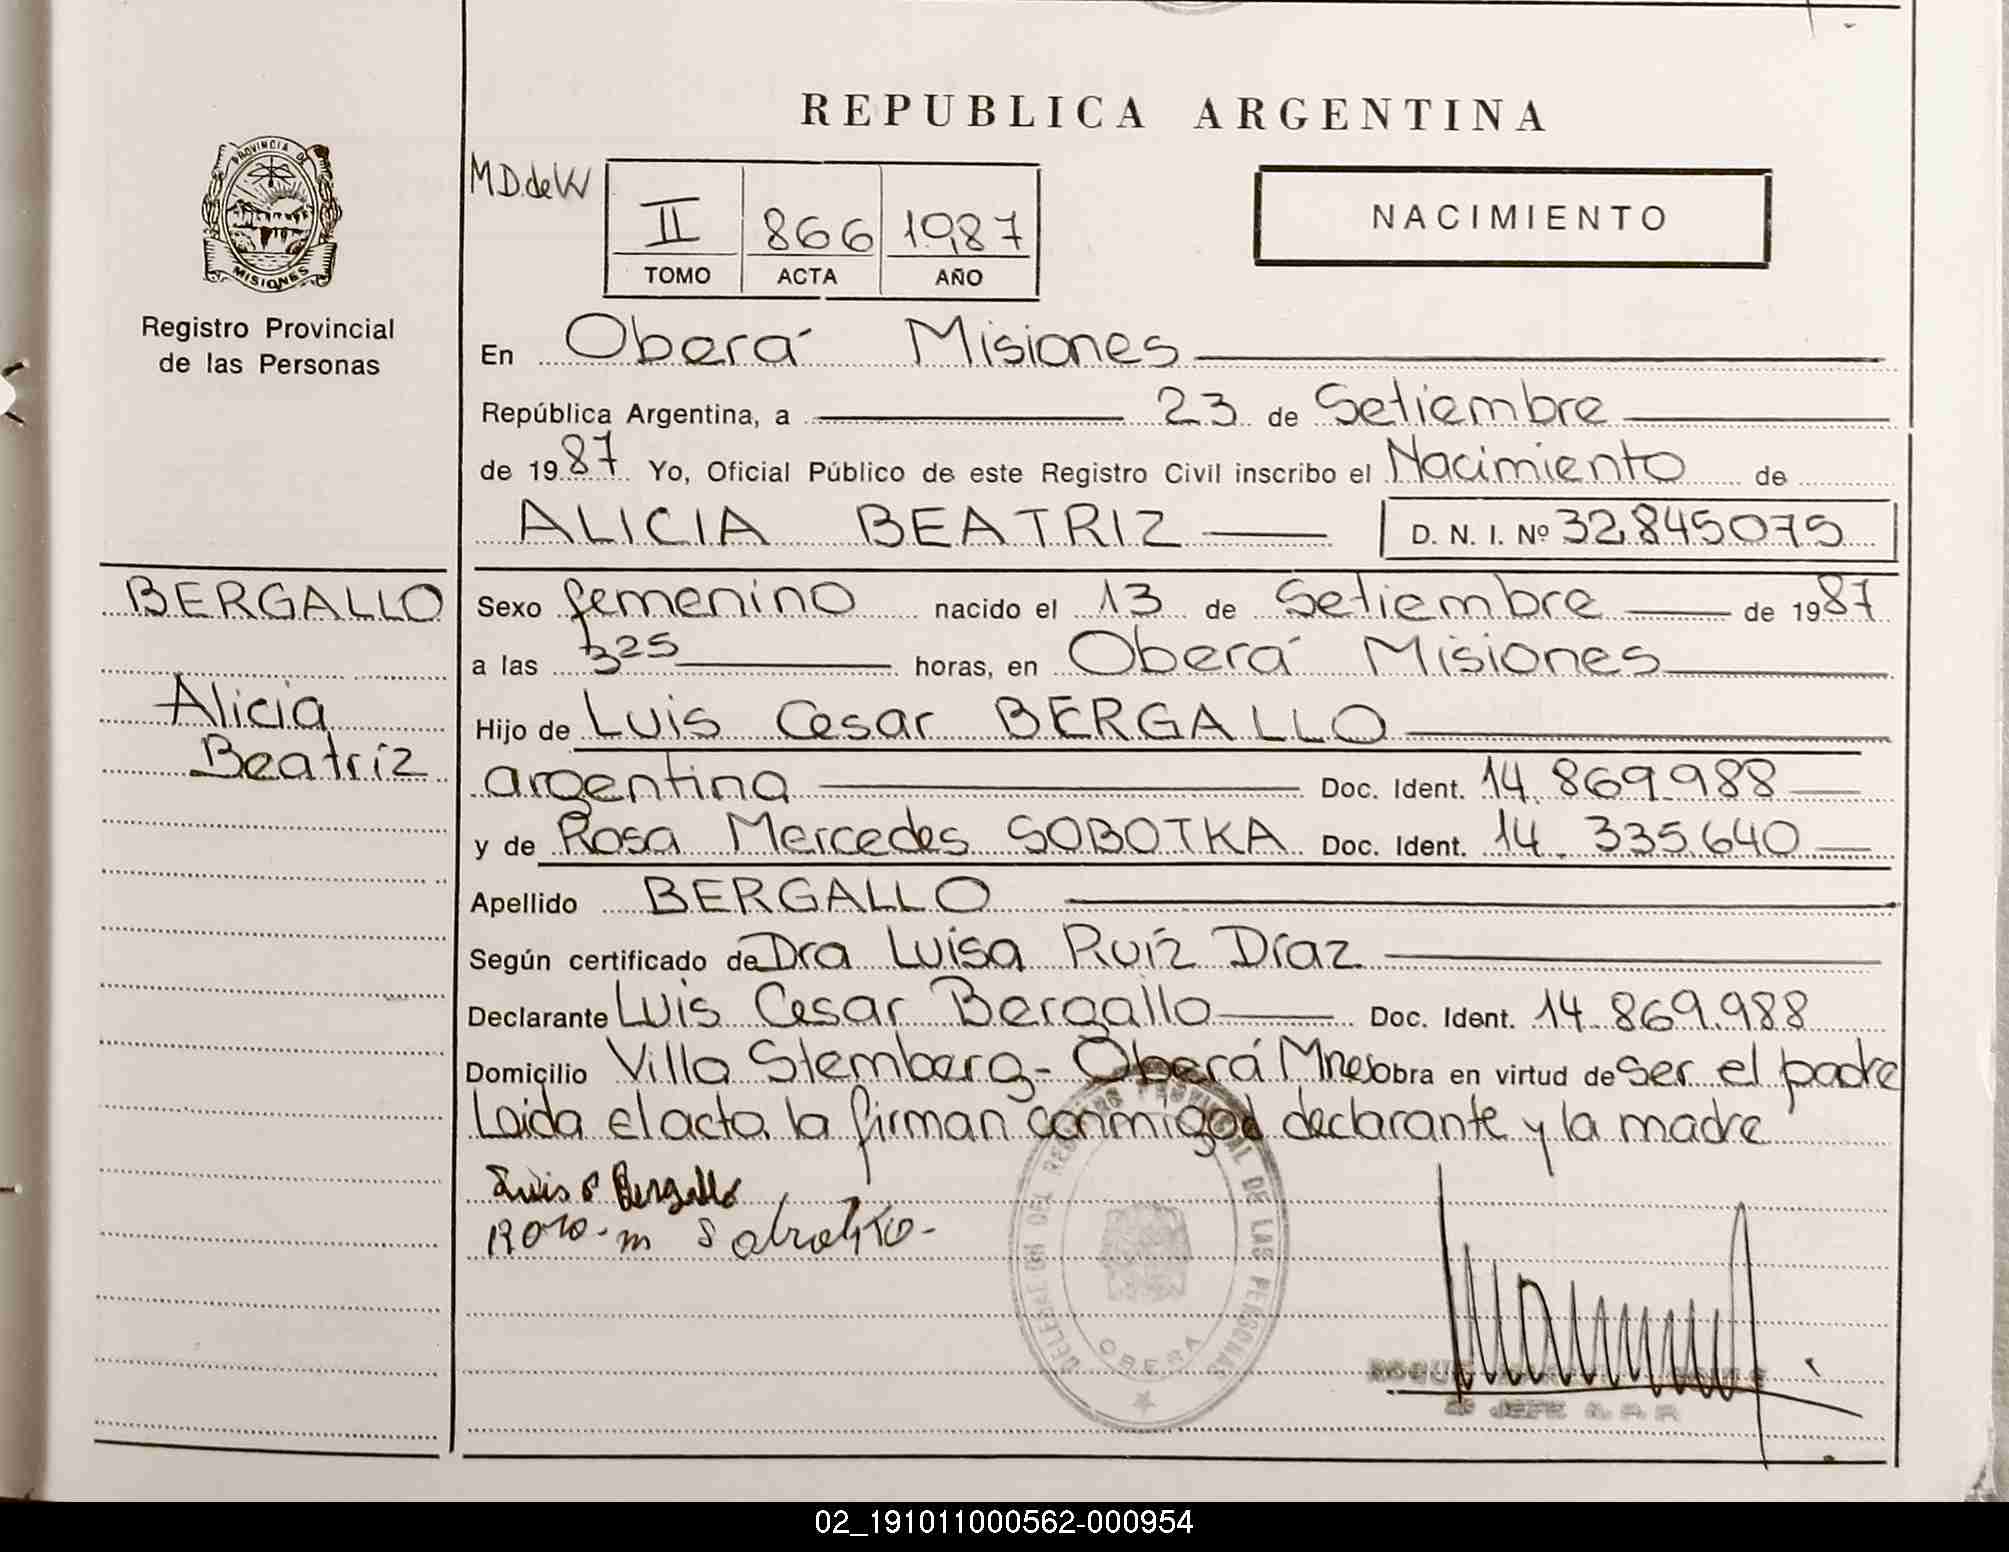 REPUBLICA ARGENTINA
PROVINCIA DE
MISIONES
Registro Provincial
de las Personas
MD.deW
II 866 1987
TOMO ACTA AÑO
NACIMIENTO
En Oberá Misiones
República Argentina, a 23 de Setiembre
de 1987 Yo, Oficial Público de este Registro Civil inscribo el Nacimiento de
ALICIA BEATRIZ D. N. I. Nº 32.845075
BERGALLO
Alicia
Beatríz
Sexo femenino nacido el 13 de Setiembre de 1987
a las 325 horas, en Oberá Misiones
Hijo de Luis Cesar BERGALLO
argentina Doc. Ident. 14.869.988
y de Rosa Mercedes SOBOTKA Doc. Ident. 14.335.640
Apellido BERGALLO
Según certificado de Dra Luisa Ruíz Díaz
Declarante Luis Cesar Bergallo Doc. Ident. 14.869.988
Domicilio Villa Stemberg - Oberá Mnes obra en virtud de ser el padre
Leída el acta la firman conmigo el declarante y la madre
Luis C Bergallo
DEL REGISTRO PROVINCIAL DE LAS PERSONAS
OBERA
2º JEFE R. P. P.
02_191011000562-000954